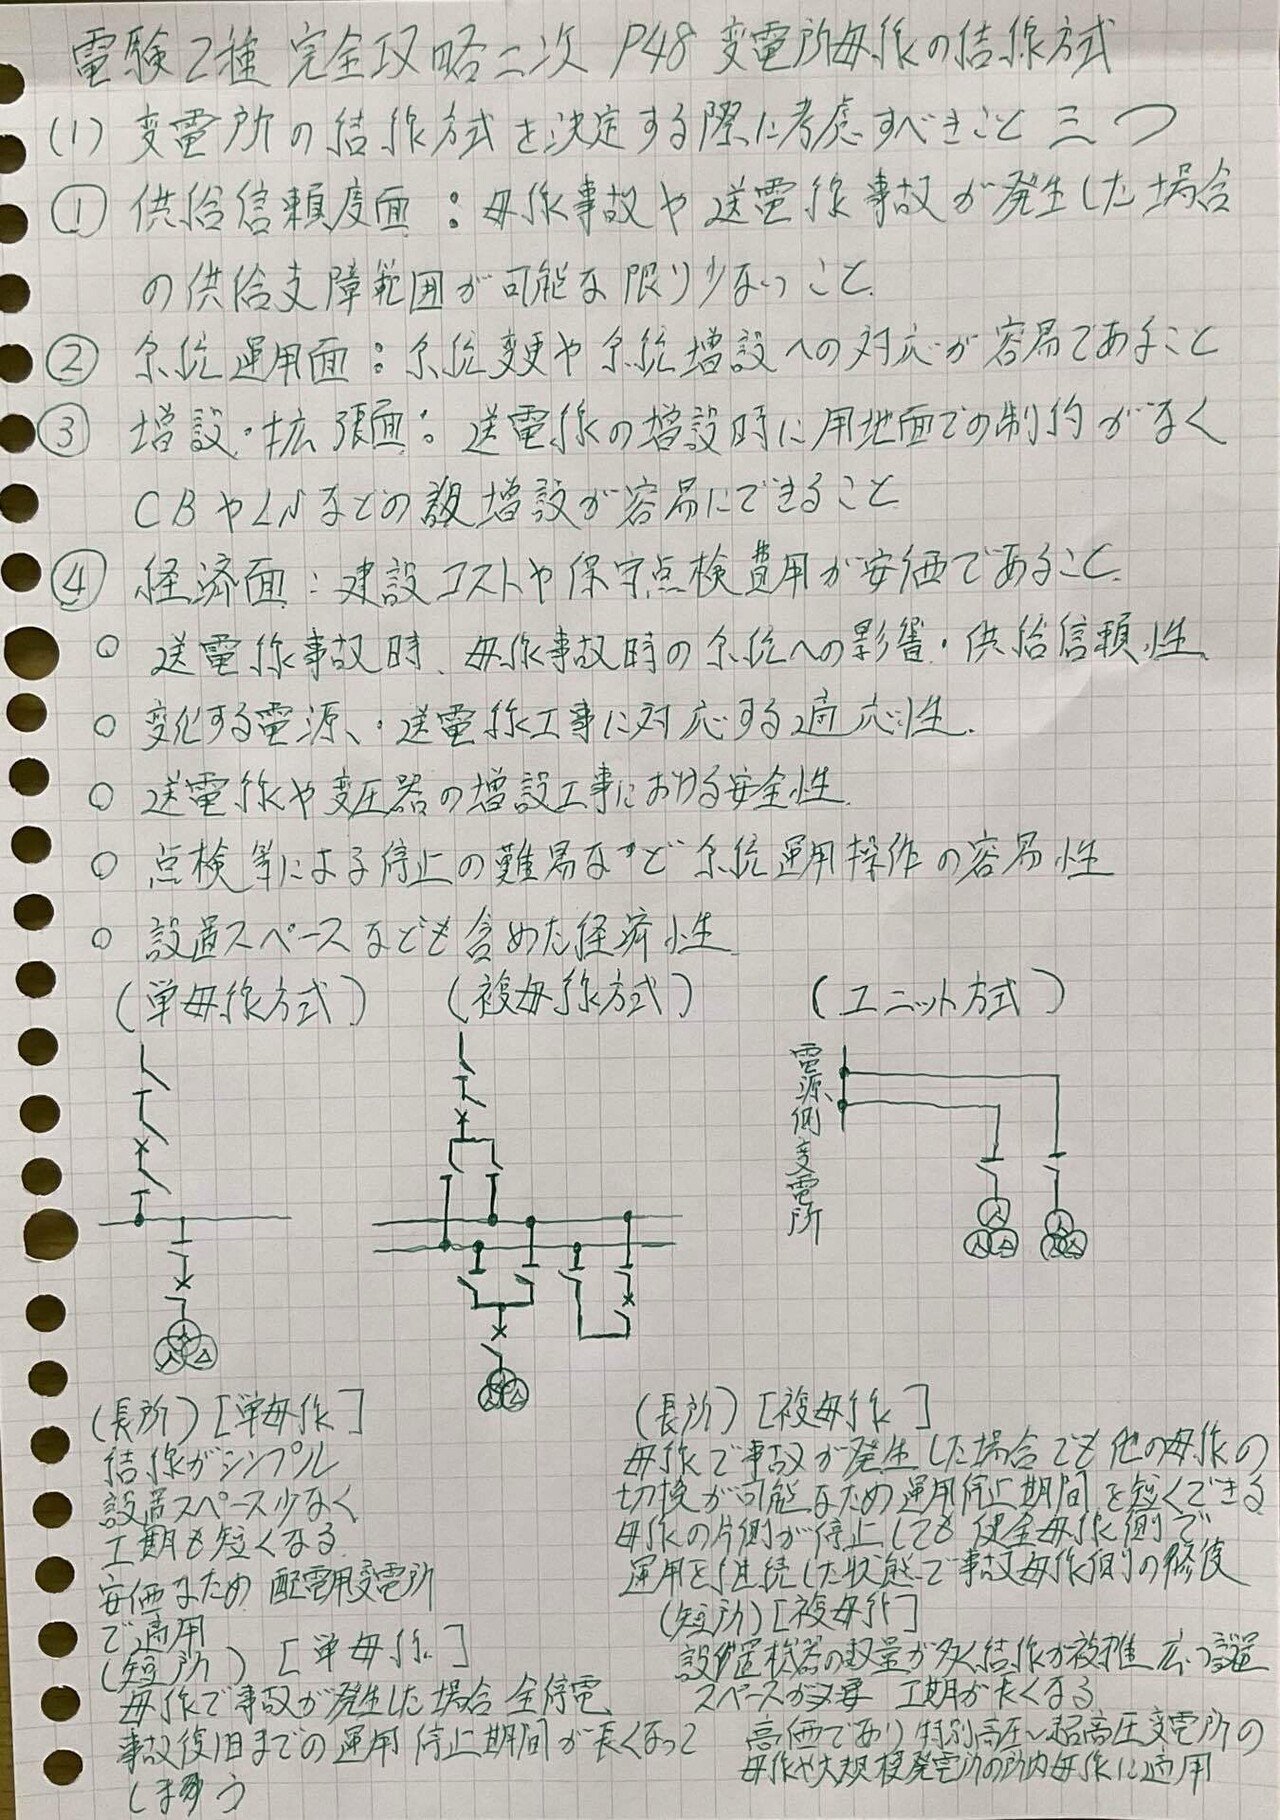 電験2種 完全攻略二次 P48 変電所母線の結線方式
(1) 変電所の結線方式を決定する際に考慮すべきこと三つ
① 供給信頼度面：母線事故や送電線事故が発生した場合
の供給支障範囲が可能な限り少ないこと.
② 系統運用面：系統変更や系統増設への対応が容易であること
③ 増設・拡張面：送電線の増設時に用地面での制約がなく
CBやLSなどの 増設が容易にできること
④ 経済面：建設コストや保守点検費用が安価であること.
○ 送電線事故時、母線事故時の系統への影響・供給信頼性、
○ 変化する電源、・送電線工事に対応する適応性.
○ 送電線や変圧器の増設工事における安全性.
○ 点検等による停止の難易など系統運用操作の容易性
○ 設置スペースなども含めた経済性
(単母線方式) (複母線方式) (ユニット方式)
電源側変電所
(長所) [単母線]
結線がシンプル
設置スペース少なく
工期も短くなる.
安価なため配電用変電所
で適用
(短所) [単母線]
母線で事故が発生した場合全停電、
事故復旧までの運用停止期間が長くなって
しまう
(長所) [複母線]
母線で事故が発生した場合でも他の母線の
切換が可能なため運用停止期間を短くできる
母線の片側が停止しても健全母線側で
運用を継続した状態で事故母線側の修復
(短所) [複母線]
設置機器の数量が多く結線が複雑 広い設置
スペースが必要 工期が長くなる
高価であり特別高圧〜超高圧変電所の
母線や大規模発電所の所内母線に適用